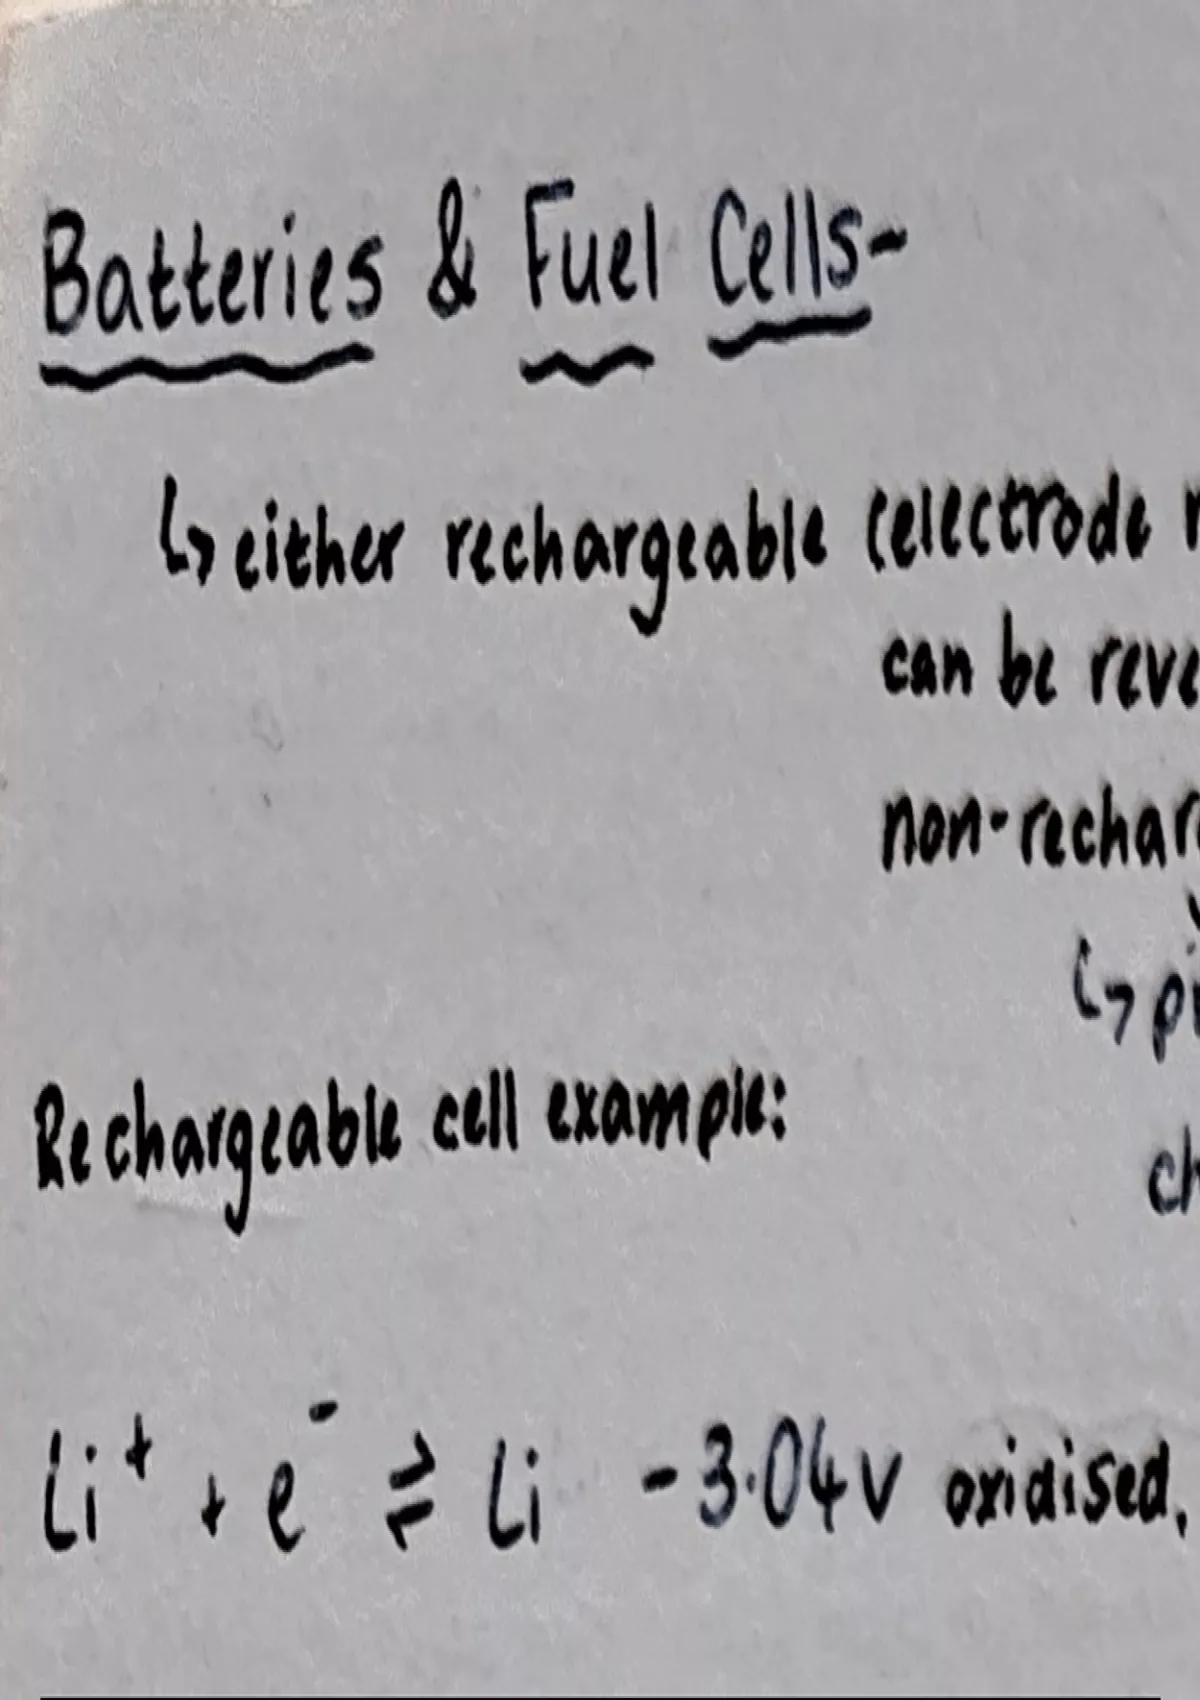 Batteries & Fuel Cells-
↳ either rechargeable (electrode
can be reve
non-rechar
↳ pi
Rechargeable cell example:
ch
Li⁺ + e⁻ ⇌ Li -3.04v oxidised,